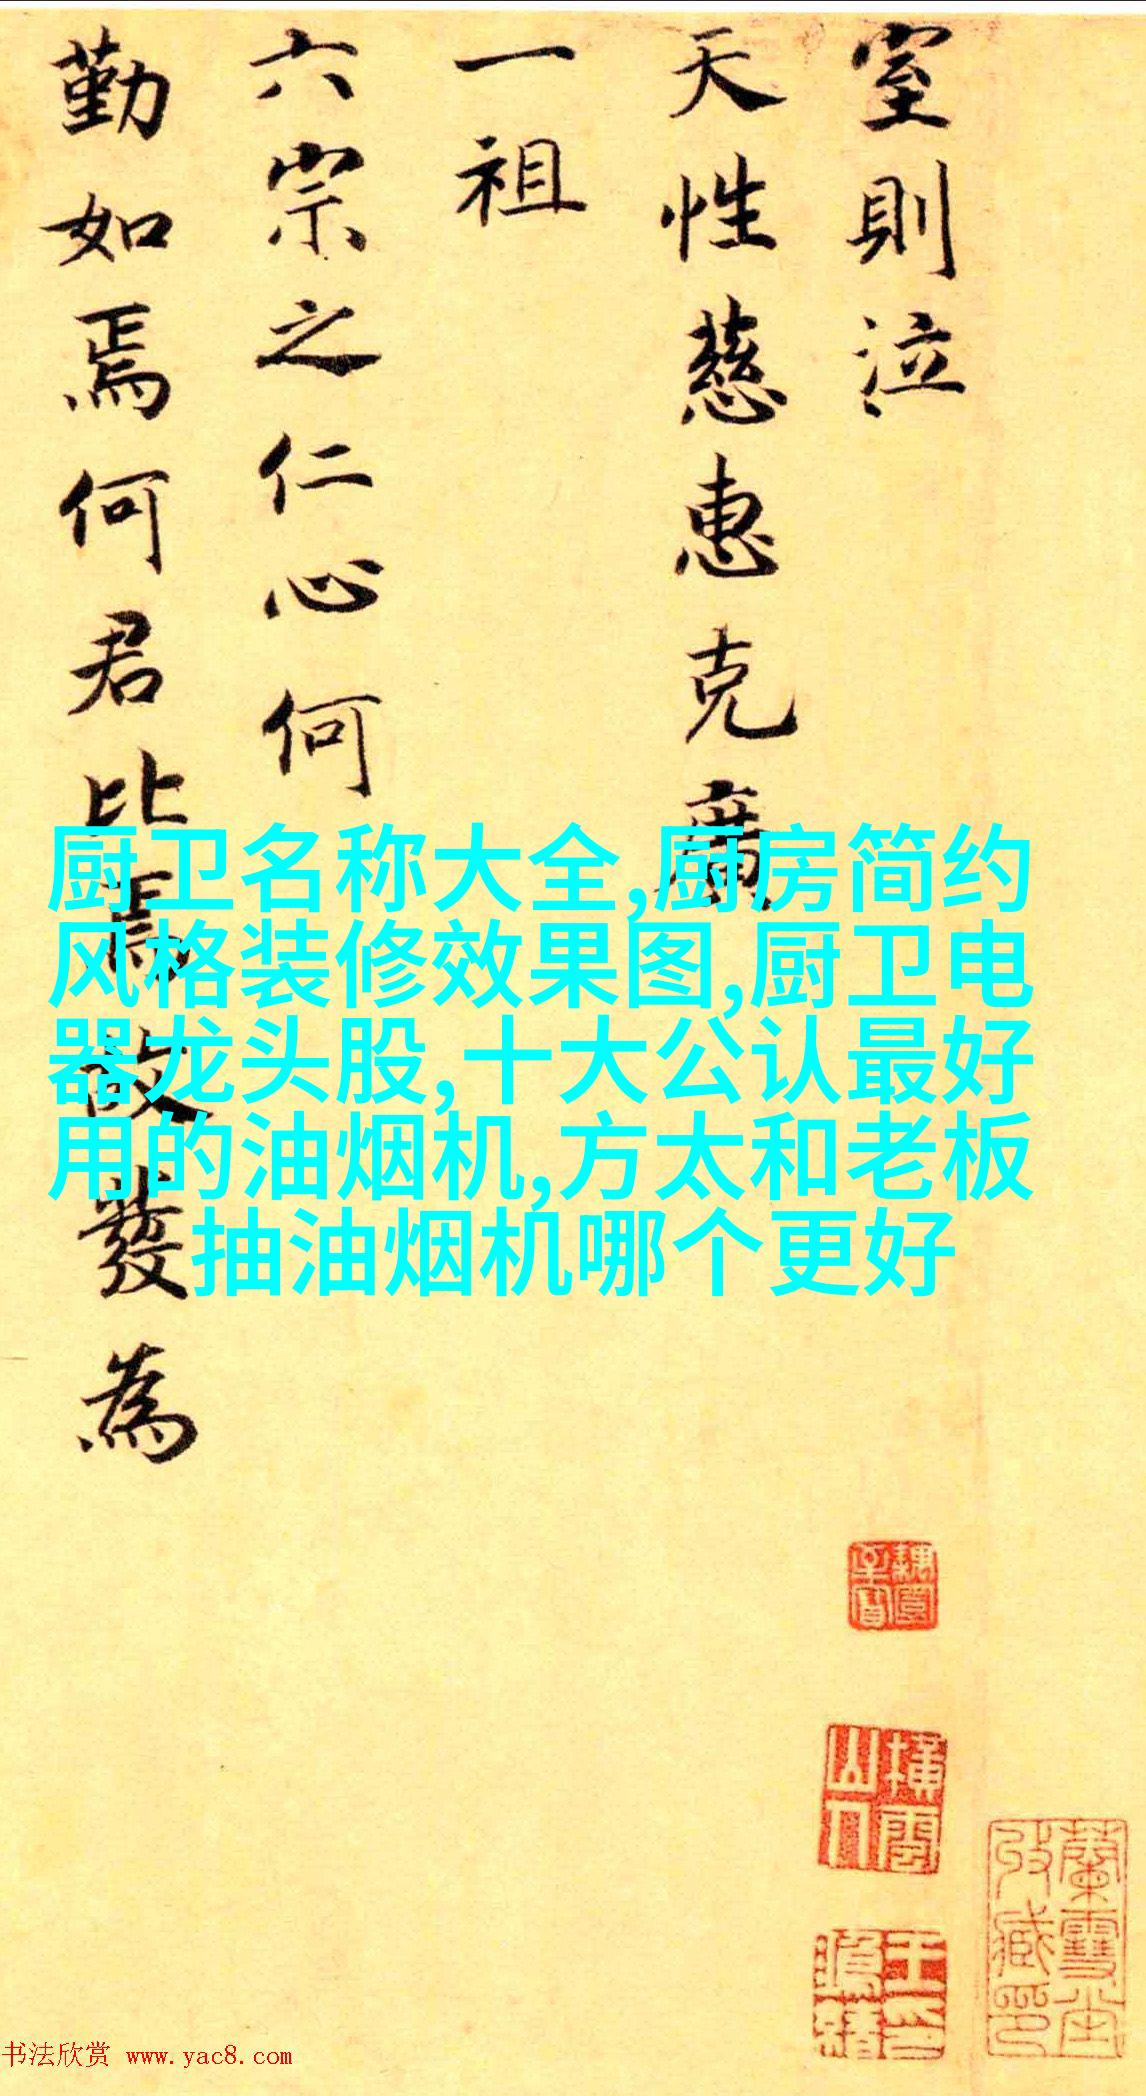 室則泣
天性慈惠克廣
一祖
六宗之仁心何
勤如焉何君比焉故發為
厨卫名称大全,厨房简约
风格装修效果图,厨卫电
器龙头股,十大公认最好
用的油烟机,方太和老板
抽油烟机哪个更好
横雲山人
蘭雪堂收藏印
书法欣赏 www.yac8.com